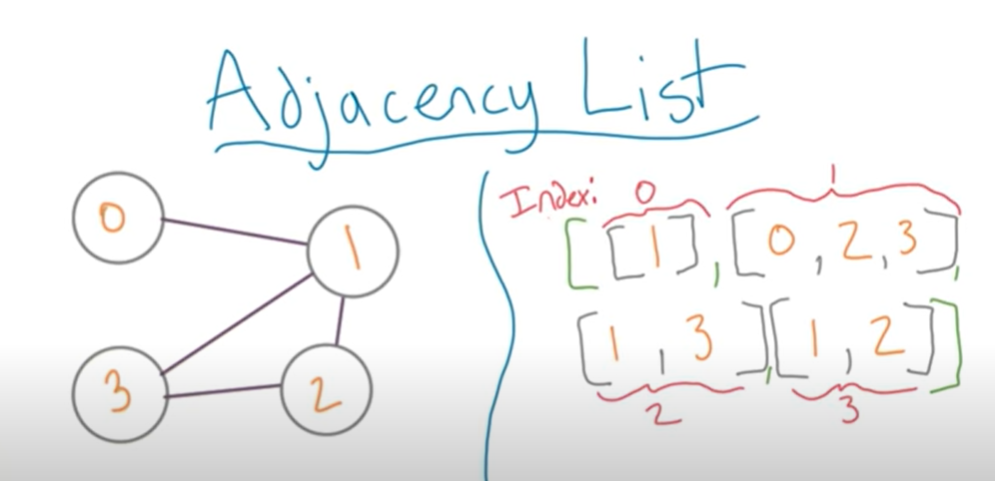 Adjacency List
0
1
3
2
Index: 0 1
[[1], [0, 2, 3],
[1, 3], [1, 2]]
2 3